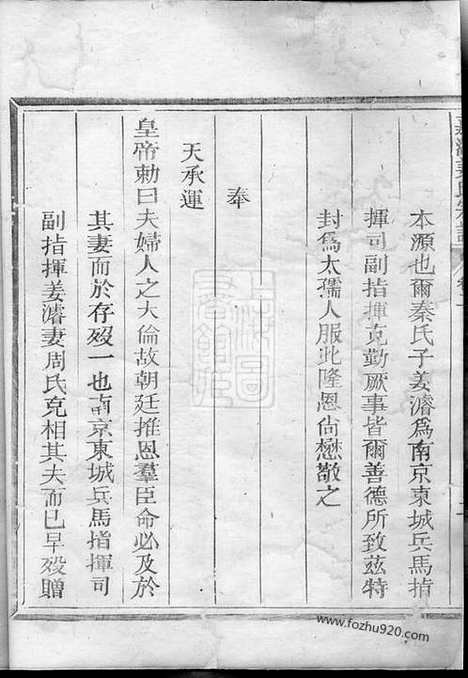 本源也爾秦氏子姜濬為南京東城兵馬指
揮司副指揮克勤厥事皆爾善德所致兹特
封為太孺人服此隆恩尚懋敬之
奉
天承運
皇帝勅曰夫婦人之大倫故朝廷推恩羣臣命必及於
其妻而於存歿一也南京東城兵馬指揮司
副指揮姜濬妻周氏克相其夫而已早歿贈
www.fozhu920.com